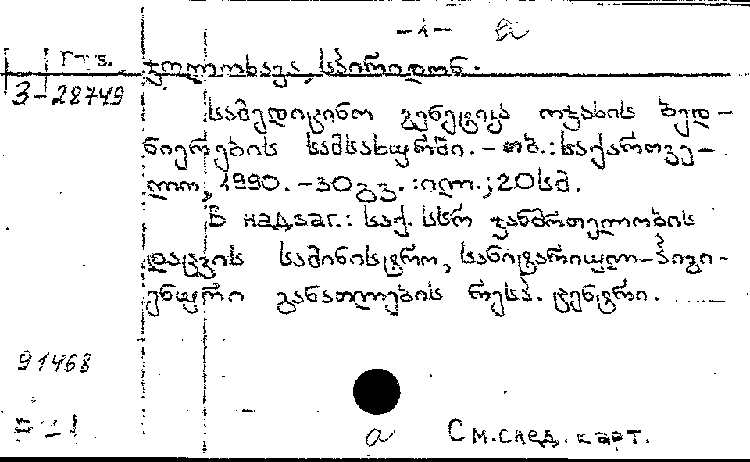 -1- a
ГПБ.
ჯოლოხავა, სპირიდონ.
3-28749
სამედიცინო გენეტიკა ოჯახის ბედ-
ნიერების სამსახურში. - თბ.: საქართვე-
ლო, 1990. - 30 გვ. : ილ. ; 20 სმ.
В надзаг.: საქ. სსრ ჯანმრთელობის
დაცვის სამინისტრო, სანიტარიულ-ჰიგი-
ენური განათლების რესპ. ცენტრი.
91468
a
См. след. карт.